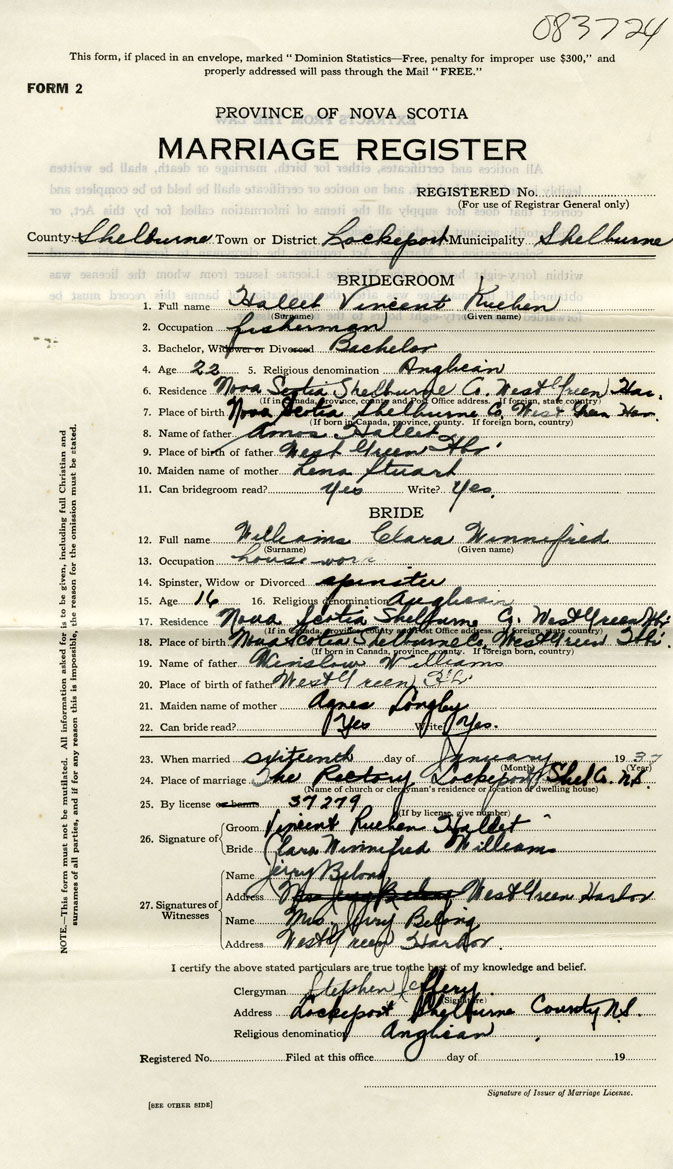 083724
This form, if placed in an envelope, marked "Dominion Statistics—Free, penalty for improper use $300," and
properly addressed will pass through the Mail "FREE."
FORM 2
PROVINCE OF NOVA SCOTIA
MARRIAGE REGISTER
REGISTERED No.
(For use of Registrar General only)
County Shelburne Town or District Lockeport Municipality Shelburne
BRIDEGROOM
1. Full name Hallet Vincent Ruehen
(Surname) (Given name)
2. Occupation fisherman
3. Bachelor, Widower or Divorced Bachelor
4. Age 22 5. Religious denomination Anglican
6. Residence Nova Scotia Shelburne Co. West Green Har.
(If in Canada, province, county and Post Office address. If foreign, state country)
7. Place of birth Nova Scotia Shelburne Co. West Green Har.
(If born in Canada, province, county. If foreign born, country)
8. Name of father Amos Hallet
9. Place of birth of father West Green Hbr
10. Maiden name of mother Lena Stuart
11. Can bridegroom read? Yes Write? Yes.
BRIDE
12. Full name Williams Clara Winnifred
(Surname) (Given name)
13. Occupation house work
14. Spinster, Widow or Divorced spinster
15. Age 16 16. Religious denomination Anglican
17. Residence Nova Scotia Shelburne Co. West Green Hbr.
(If in Canada, province, county and Post Office address. If foreign, state country)
18. Place of birth Nova Scotia Shelburne Co. West Green Hbr.
(If born in Canada, province, county. If foreign born, country)
19. Name of father Winslow Williams
20. Place of birth of father West Green Hbr.
21. Maiden name of mother Agnes Longby
22. Can bride read? Yes Write? Yes.
23. When married sixteenth day of January 1937
(Month) (Year)
24. Place of marriage The Rectory Lockeport Shel Co. N.S.
(Name of church or clergyman's residence or location of dwelling house)
25. By license or banns 37279
(If by license, give number)
26. Signature of Groom Vincent Ruehen Hallet
Bride Clara Winnifred Williams
27. Signatures of Witnesses Name Jerry Belong
Address West Green Harbor
Name Mrs. Jerry Belong
Address West Green Harbor.
I certify the above stated particulars are true to the best of my knowledge and belief.
Clergyman Stephen Jeffery.
(Signature)
Address Lockeport Shelburne County N.S.
Religious denomination Anglican.
Registered No. Filed at this office day of 19
Signature of Issuer of Marriage License.
[SEE OTHER SIDE]
NOTE.—This form must not be mutilated. All information asked for is to be given, including full Christian and
surnames of all parties, and if for any reason this is impossible, the reason for the omission must be stated.